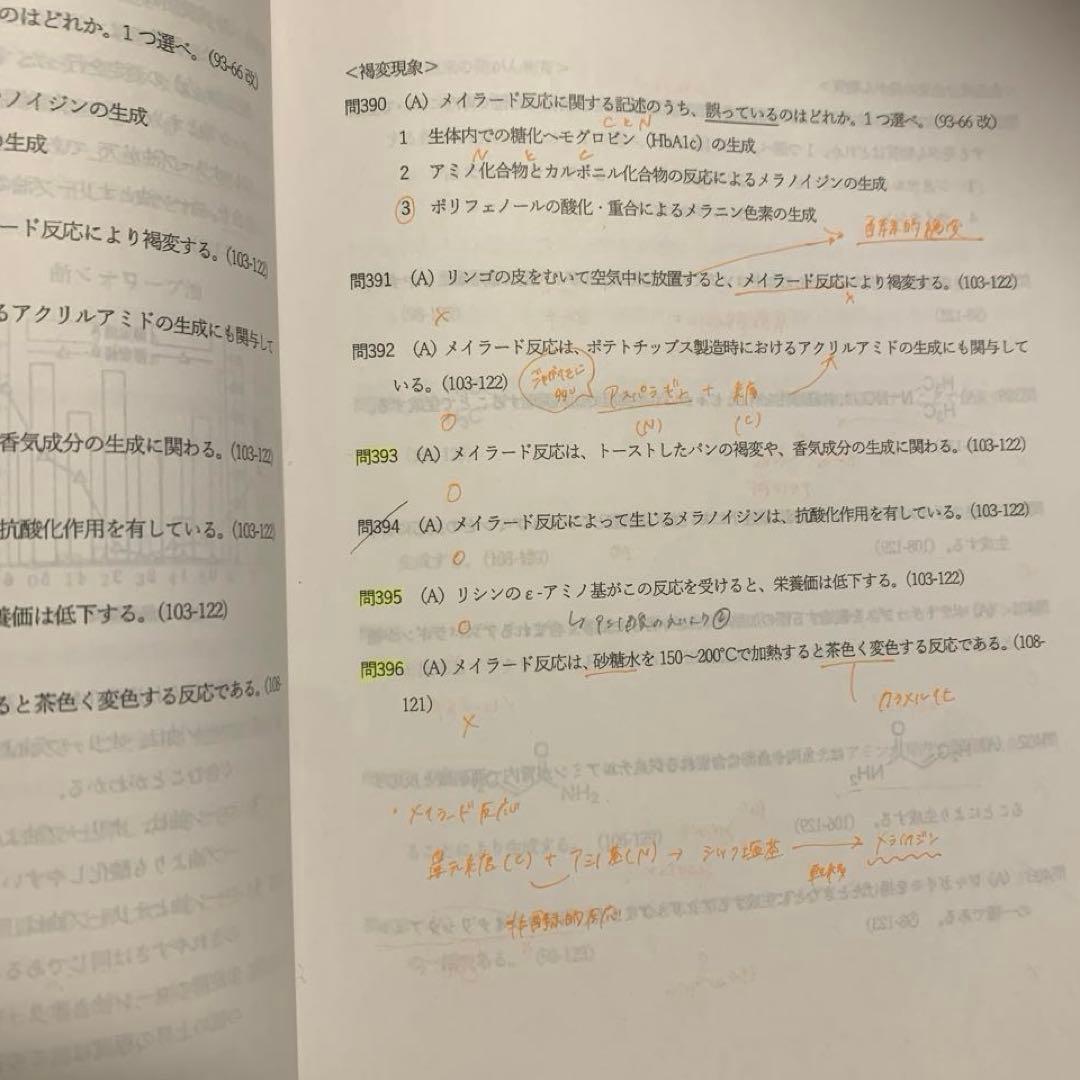 のはどれか。1つ選べ。(93-66改)
ノイジンの生成
の生成
ード反応により褐変する。(103-122)
るアクリルアミドの生成にも関与して
香気成分の生成に関わる。(103-122)
抗酸化作用を有している。(103-122)
養価は低下する。(103-122)
ると茶色く変色する反応である。(108-
<褐変現象>
問390 (A) メイラード反応に関する記述のうち、誤っているのはどれか。1つ選べ。(93-66改)
CとN
1 生体内での糖化ヘモグロビン(HbA1c)の生成
N と C
2 アミノ化合物とカルボニル化合物の反応によるメラノイジンの生成
3 ポリフェノールの酸化・重合によるメラニン色素の生成
酵素的褐変
問391 (A) リンゴの皮をむいて空気中に放置すると、メイラード反応により褐変する。(103-122)
×
×
問392 (A) メイラード反応は、ポテトチップス製造時におけるアクリルアミドの生成にも関与して
いる。(103-122)
じゃがいもに
アスパラギン + 糖
(N) (C)
○
問393 (A) メイラード反応は、トーストしたパンの褐変や、香気成分の生成に関わる。(103-122)
○
問394 (A) メイラード反応によって生じるメラノイジンは、抗酸化作用を有している。(103-122)
○
問395 (A) リシンのε-アミノ基がこの反応を受けると、栄養価は低下する。(103-122)
○
問396 (A) メイラード反応は、砂糖水を150～200℃で加熱すると茶色く変色する反応である。(108-
121)
カラメル化
×
・メイラード反応
還元糖(C) + アミノ基(N) → シッフ塩基 → メラノイジン
転移
非酵素的反応